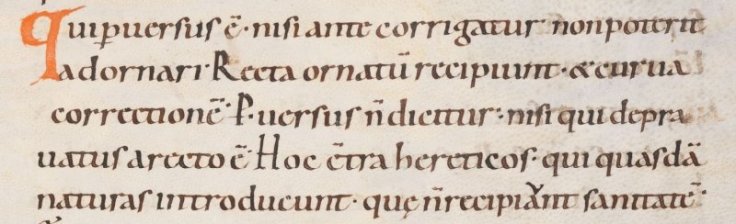 Qui ꝑuersus ē· nisi ante corrigatur non poterit
adornari· Recta ornatū recipiunt· & curua
correctionē· P̲uersus n̄ dicitur· nisi qui depra
uatus a recto ē· Hoc c̄tra hereticos· qui quasdā
naturas introducunt· quę n̄ recipiant sanitatē·